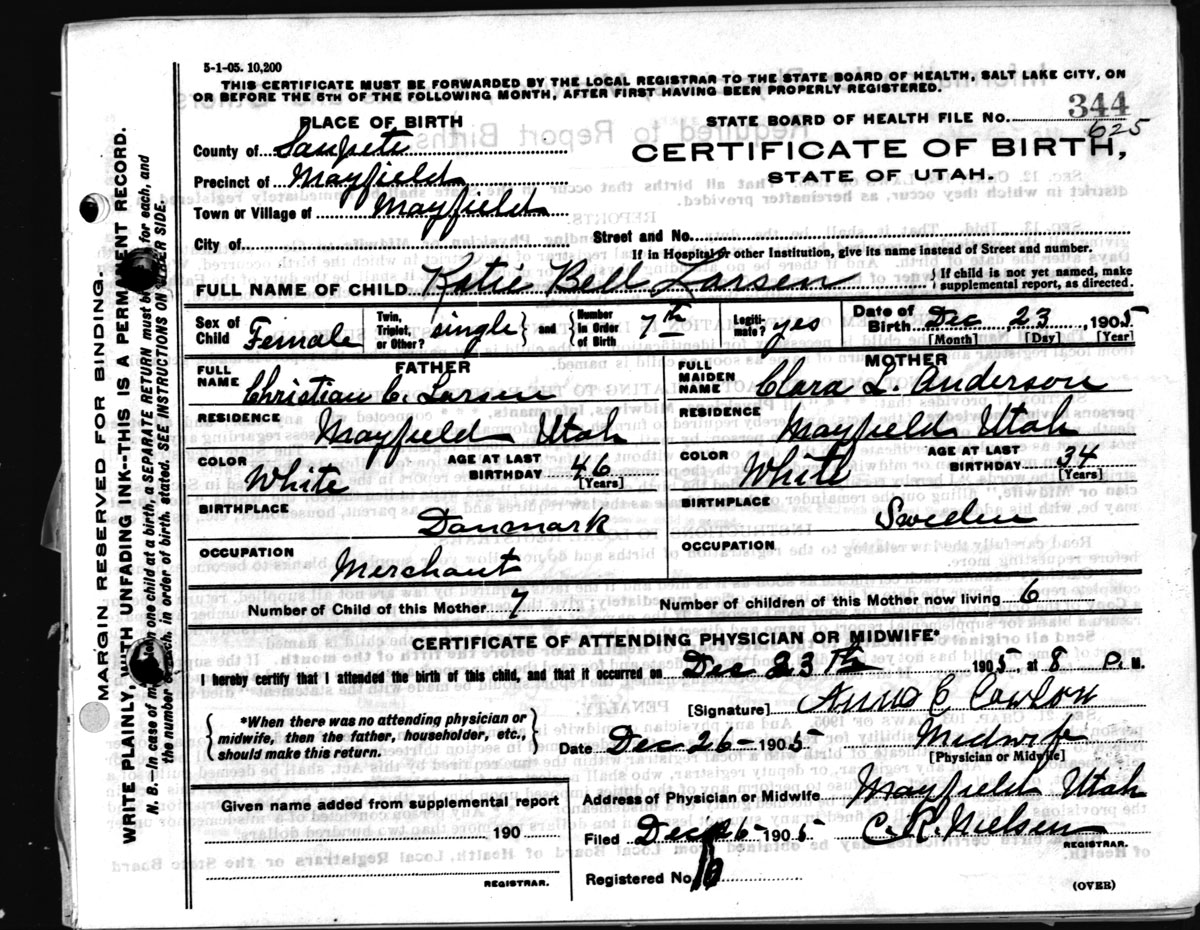 5-1-05. 10,200
THIS CERTIFICATE MUST BE FORWARDED BY THE LOCAL REGISTRAR TO THE STATE BOARD OF HEALTH, SALT LAKE CITY, ON
OR BEFORE THE 5TH OF THE FOLLOWING MONTH, AFTER FIRST HAVING BEEN PROPERLY REGISTERED.
PLACE OF BIRTH
STATE BOARD OF HEALTH FILE No. 344
625
County of Sanpete
CERTIFICATE OF BIRTH,
Precinct of Mayfield
STATE OF UTAH.
Town or Village of Mayfield
City of
Street and No.
If in Hospital or other Institution, give its name instead of Street and number.
FULL NAME OF CHILD Katie Bell Larsen { If child is not yet named, make supplemental report, as directed.
Sex of Child Female Twin, Triplet, or Other? single } and { Number in Order of Birth 7th Legitimate? yes Date of Birth Dec 23, 1905
[Month] [Day] [Year]
FATHER
MOTHER
FULL NAME Christian C. Larsen
FULL MAIDEN NAME Clara L. Anderson
RESIDENCE Mayfield Utah
RESIDENCE Mayfield Utah
COLOR White AGE AT LAST BIRTHDAY 46 [Years]
COLOR White AGE AT LAST BIRTHDAY 34 [Years]
BIRTHPLACE Danmark
BIRTHPLACE Sweden
OCCUPATION Merchant
OCCUPATION
Number of Child of this Mother 7
Number of children of this Mother now living 6
CERTIFICATE OF ATTENDING PHYSICIAN OR MIDWIFE*
I hereby certify that I attended the birth of this child, and that it occurred on Dec 23th 1905, at 8 P. M.
[Signature] Anna C
{ *When there was no attending physician or midwife, then the father, householder, etc., should make this return. }
Date Dec 26- 1905 Midwife
[Physician or Midwife]
Given name added from supplemental report
190
REGISTRAR.
Address of Physician or Midwife Mayfield Utah
Filed Dec 26- 1905 C. R. Nielsen
REGISTRAR.
Registered No.
(OVER)
MARGIN RESERVED FOR BINDING.
WRITE PLAINLY, WITH UNFADING INK--THIS IS A PERMANENT RECORD.
N. B.--In case of more than one child at a birth, a SEPARATE RETURN must be for each, and
the number of each, in order of birth, stated. SEE INSTRUCTIONS ON OTHER SIDE.